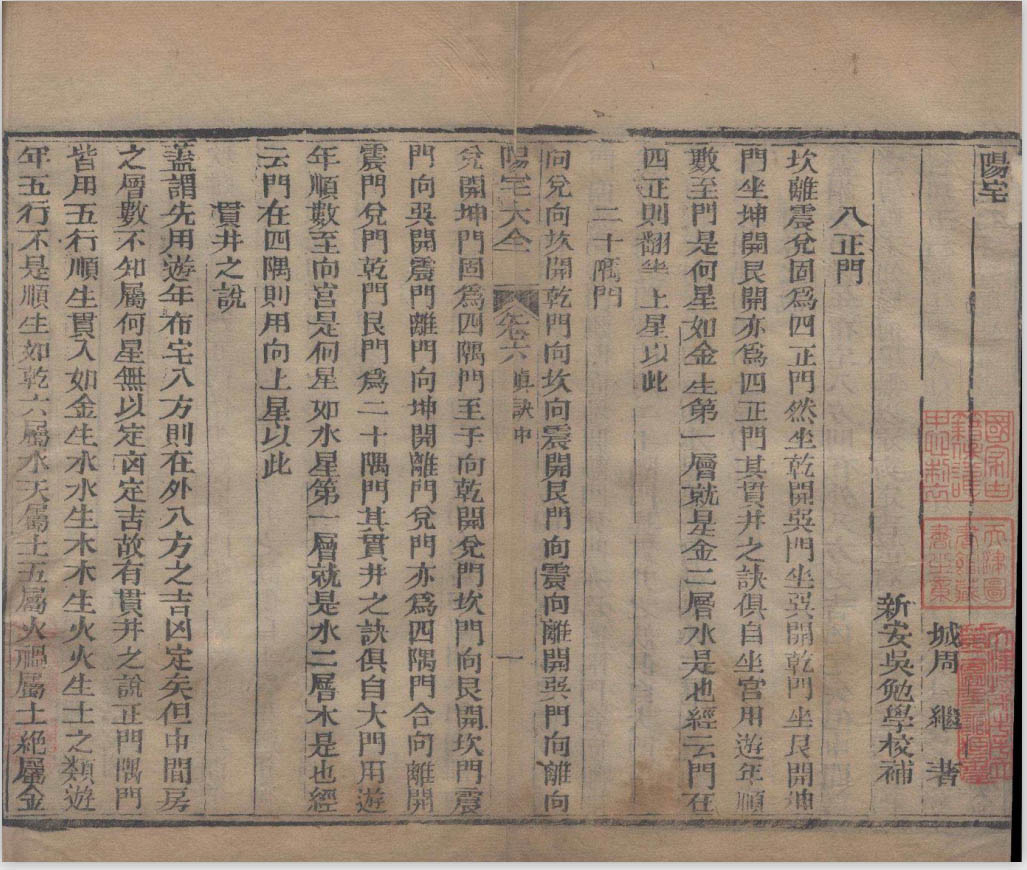 陽宅
城周 繼 著
新安吳勉學校補
八正門
坎離震兌固爲四正門然坐乾開巽門坐巽開乾門坐艮開坤
門坐坤開艮開亦爲四正門其貫井之訣俱自坐宮用遊年順
數至門是何星如金生第一層就是金二層水是也經云門在
四正則翻坐上星以此
二十隅門
向兌向坎開乾門向坎向震開艮門向震向離開巽門向離向
陽宅大全 卷六 眞訣中 一
兌開坤門固爲四隅門至子向乾開兌門坎門向艮開坎門震
門向巽開震門離門向坤開離門兌門亦爲四隅門合向離開
震門兌門乾門艮門爲二十隅門其貫井之訣俱自大門用遊
年順數至向宮是何星如水星第一層就是水二層木是也經
云門在四隅則用向上星以此
貫井之說
蓋謂先用遊年布宅八方則在外八方之吉凶定矣但中間房
之層數不知屬何星無以定凶定吉故有貫井之說正門隅門
皆用五行順生貫入如金生水水生木木生火火生土之類遊
年五行不是順生如乾六屬水天屬土五屬火禍屬土絕屬金